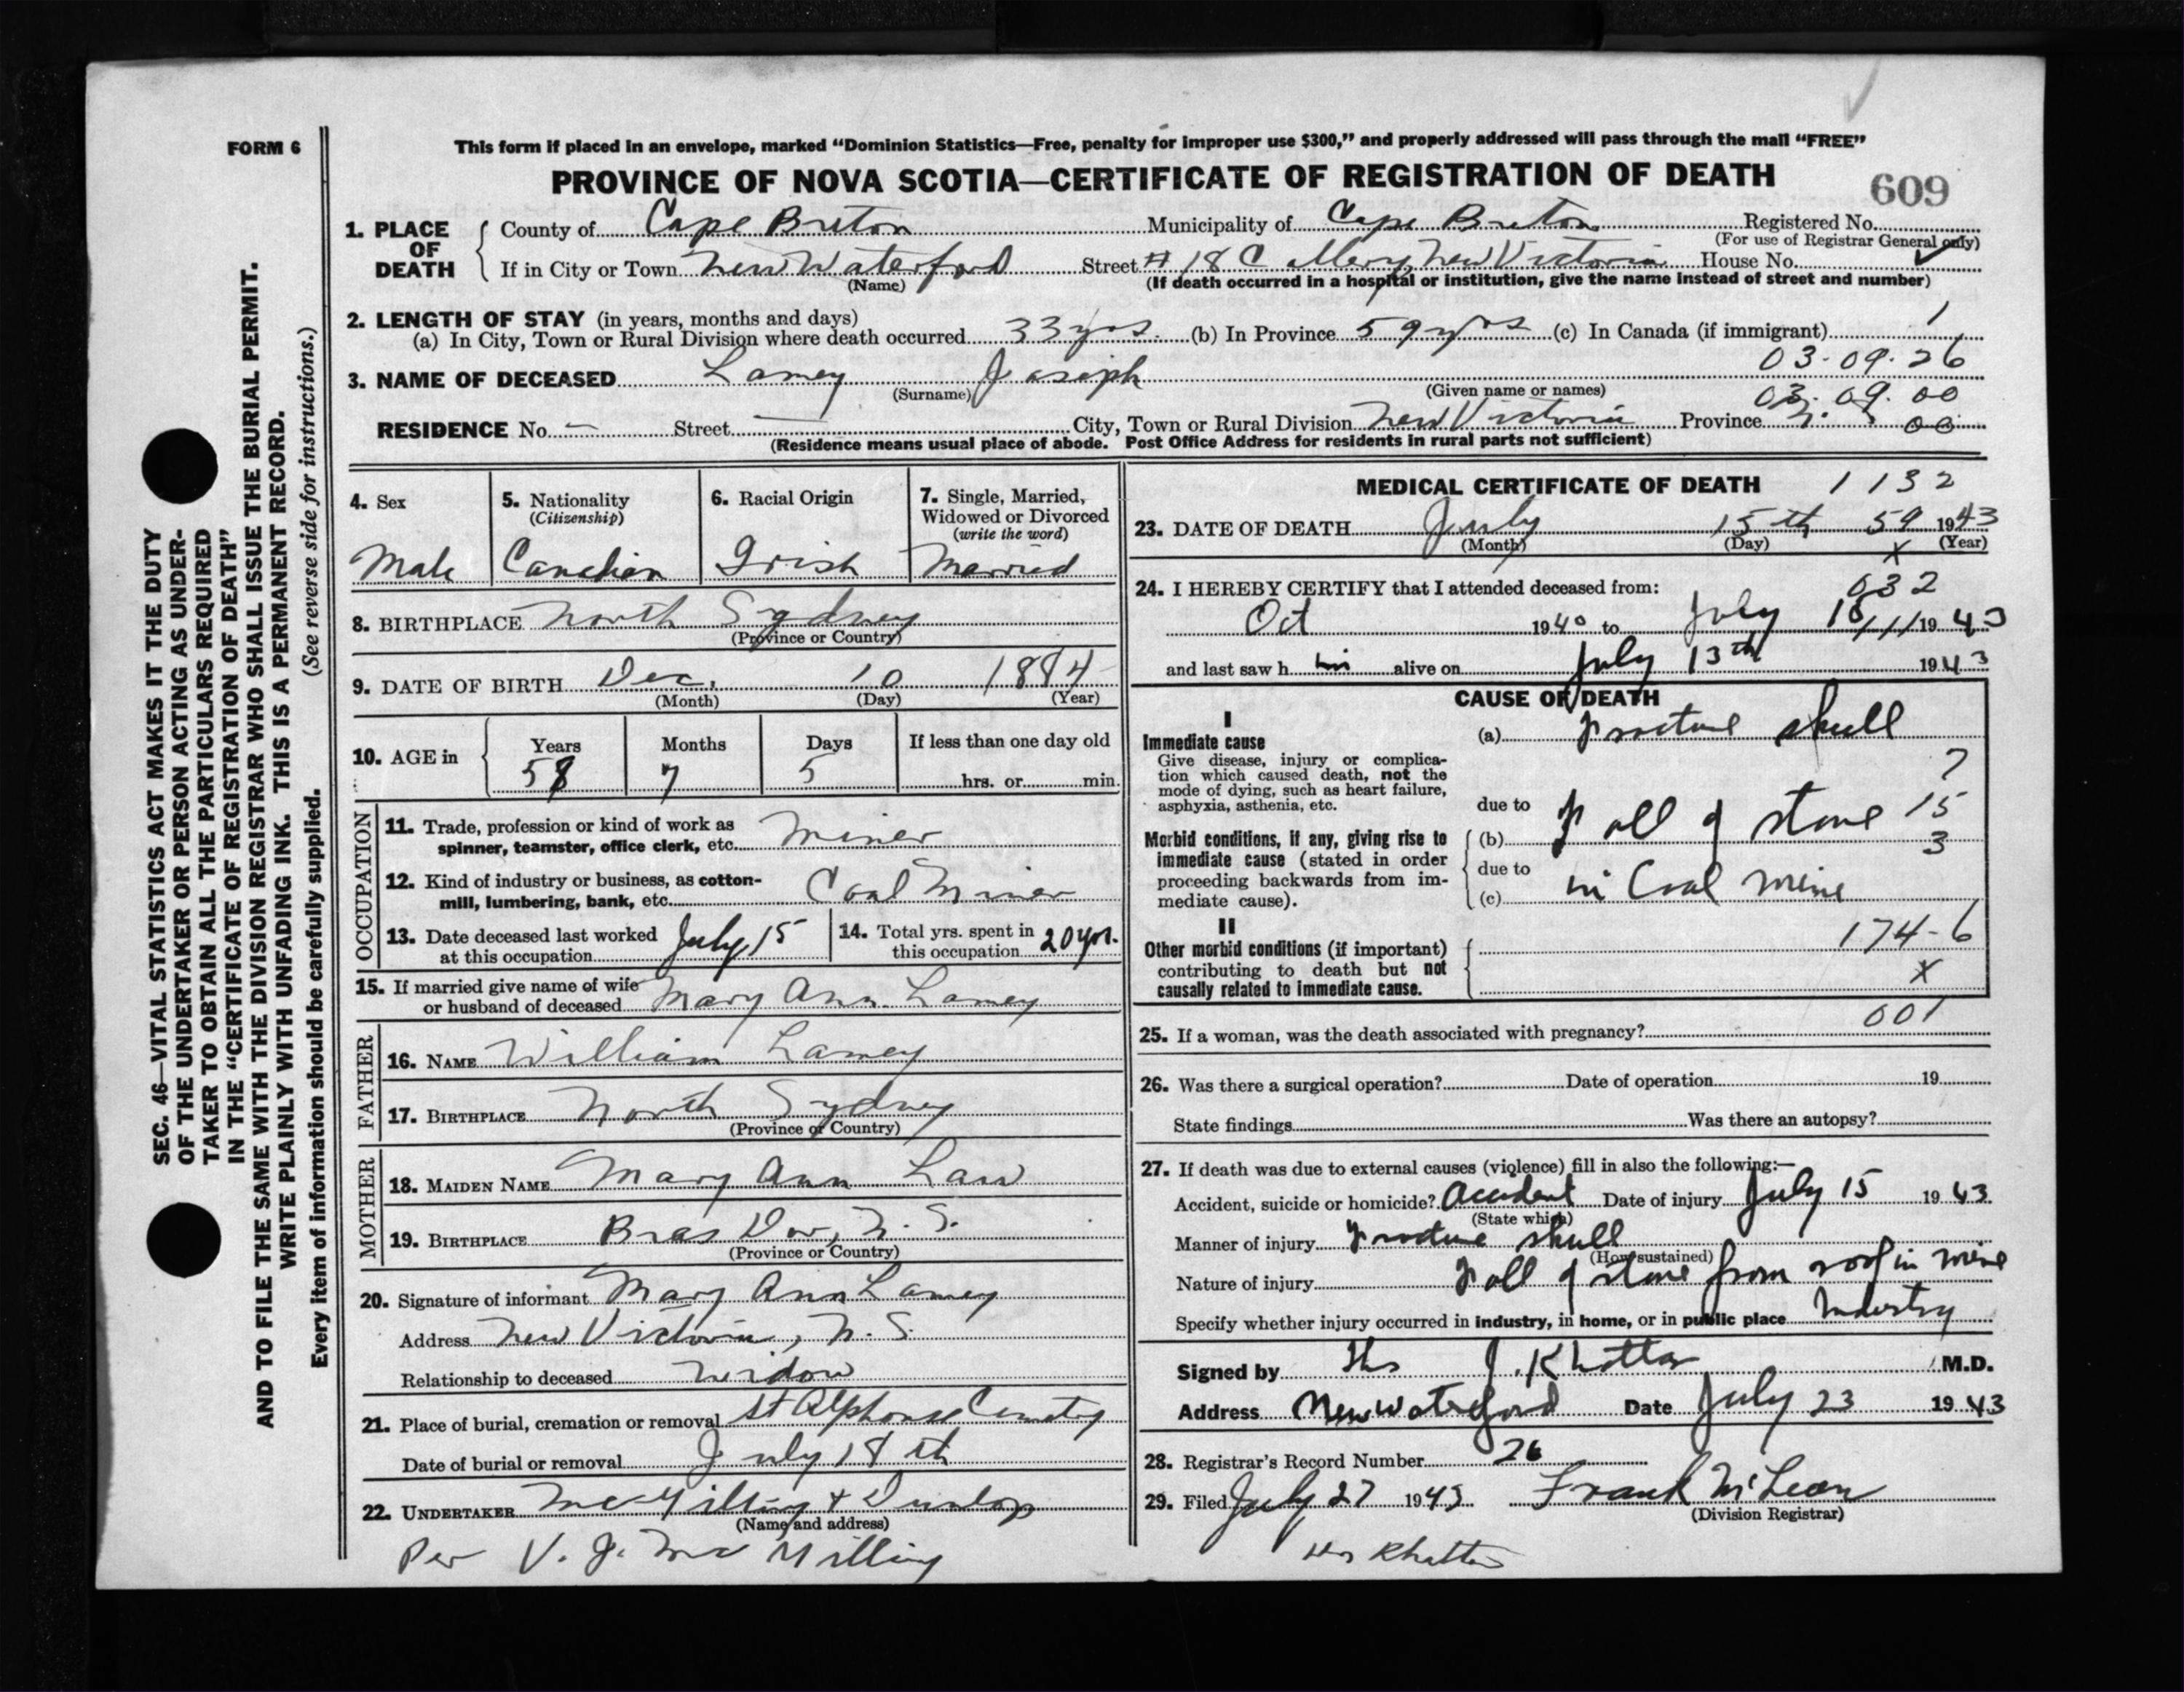 FORM 6
This form if placed in an envelope, marked "Dominion Statistics—Free, penalty for improper use $300," and properly addressed will pass through the mail "FREE"
PROVINCE OF NOVA SCOTIA—CERTIFICATE OF REGISTRATION OF DEATH
609
SEC. 46—VITAL STATISTICS ACT MAKES IT THE DUTY
OF THE UNDERTAKER OR PERSON ACTING AS UNDER-
TAKER TO OBTAIN ALL THE PARTICULARS REQUIRED
IN THE "CERTIFICATE OF REGISTRATION OF DEATH"
AND TO FILE THE SAME WITH THE DIVISION REGISTRAR WHO SHALL ISSUE THE BURIAL PERMIT.
WRITE PLAINLY WITH UNFADING INK. THIS IS A PERMANENT RECORD.
Every item of information should be carefully supplied. (See reverse side for instructions.)
1. PLACE OF DEATH
County of Cape Breton Municipality of Cape Breton Registered No.
(For use of Registrar General only)
If in City or Town New Waterford Street # 18 C New Victoria House No.
(Name) (If death occurred in a hospital or institution, give the name instead of street and number)
2. LENGTH OF STAY (in years, months and days)
(a) In City, Town or Rural Division where death occurred 33 yrs. (b) In Province 59 yrs (c) In Canada (if immigrant)
03-09-26
3. NAME OF DECEASED Lamey Joseph
(Surname) (Given name or names)
03.09.00
RESIDENCE No. — Street — City, Town or Rural Division New Victoria Province 00
(Residence means usual place of abode. Post Office Address for residents in rural parts not sufficient)
4. Sex
Male
5. Nationality
(Citizenship)
Canadian
6. Racial Origin
Irish
7. Single, Married,
Widowed or Divorced
(write the word)
Married
8. BIRTHPLACE North Sydney
(Province or Country)
9. DATE OF BIRTH Dec. 10 1884
(Month) (Day) (Year)
10. AGE in
Years Months Days If less than one day old
58 7 5 hrs. or min.
OCCUPATION
11. Trade, profession or kind of work as
spinner, teamster, office clerk, etc. Miner
12. Kind of industry or business, as cotton-
mill, lumbering, bank, etc. Coal Miner
13. Date deceased last worked
at this occupation July 15
14. Total yrs. spent in
this occupation 20 yrs.
15. If married give name of wife
or husband of deceased Mary Ann Lamey
FATHER
16. NAME William Lamey
17. BIRTHPLACE North Sydney
(Province or Country)
MOTHER
18. MAIDEN NAME Mary Ann Law
19. BIRTHPLACE Bras Dor, N. S.
(Province or Country)
20. Signature of informant Mary Ann Lamey
Address New Victoria, N. S.
Relationship to deceased Widow
21. Place of burial, cremation or removal St Alphonse Cemetery
Date of burial or removal July 18 th
22. UNDERTAKER McGilliry & Dunlop
(Name and address)
Per V. J. McGilliry
MEDICAL CERTIFICATE OF DEATH 1132
23. DATE OF DEATH July 15th 59 1943
(Month) (Day) X (Year)
24. I HEREBY CERTIFY that I attended deceased from: 032
Oct 1940 to July 15 11 1943
and last saw him alive on July 13th 1943
CAUSE OF DEATH
I
Immediate cause
Give disease, injury or complica-
tion which caused death, not the
mode of dying, such as heart failure,
asphyxia, asthenia, etc.
(a) Fracture skull
7
due to
Morbid conditions, if any, giving rise to
immediate cause (stated in order
proceeding backwards from im-
mediate cause).
(b) Fall of stone 15
3
due to
(c) in Coal mine
II
Other morbid conditions (if important)
contributing to death but not
causally related to immediate cause.
174-6
X
001
25. If a woman, was the death associated with pregnancy?
26. Was there a surgical operation? Date of operation 19
State findings Was there an autopsy?
27. If death was due to external causes (violence) fill in also the following:—
Accident, suicide or homicide? Accident Date of injury July 15 1943
(State which)
Manner of injury Fracture skull
(How sustained)
Nature of injury Fall of stone from roof in mine
Specify whether injury occurred in industry, in home, or in public place Industry
Signed by Ths J. Khattar M.D.
Address New Waterford Date July 23 1943
28. Registrar's Record Number 26
29. Filed July 27 1943 Frank McLean
(Division Registrar)
Khattar